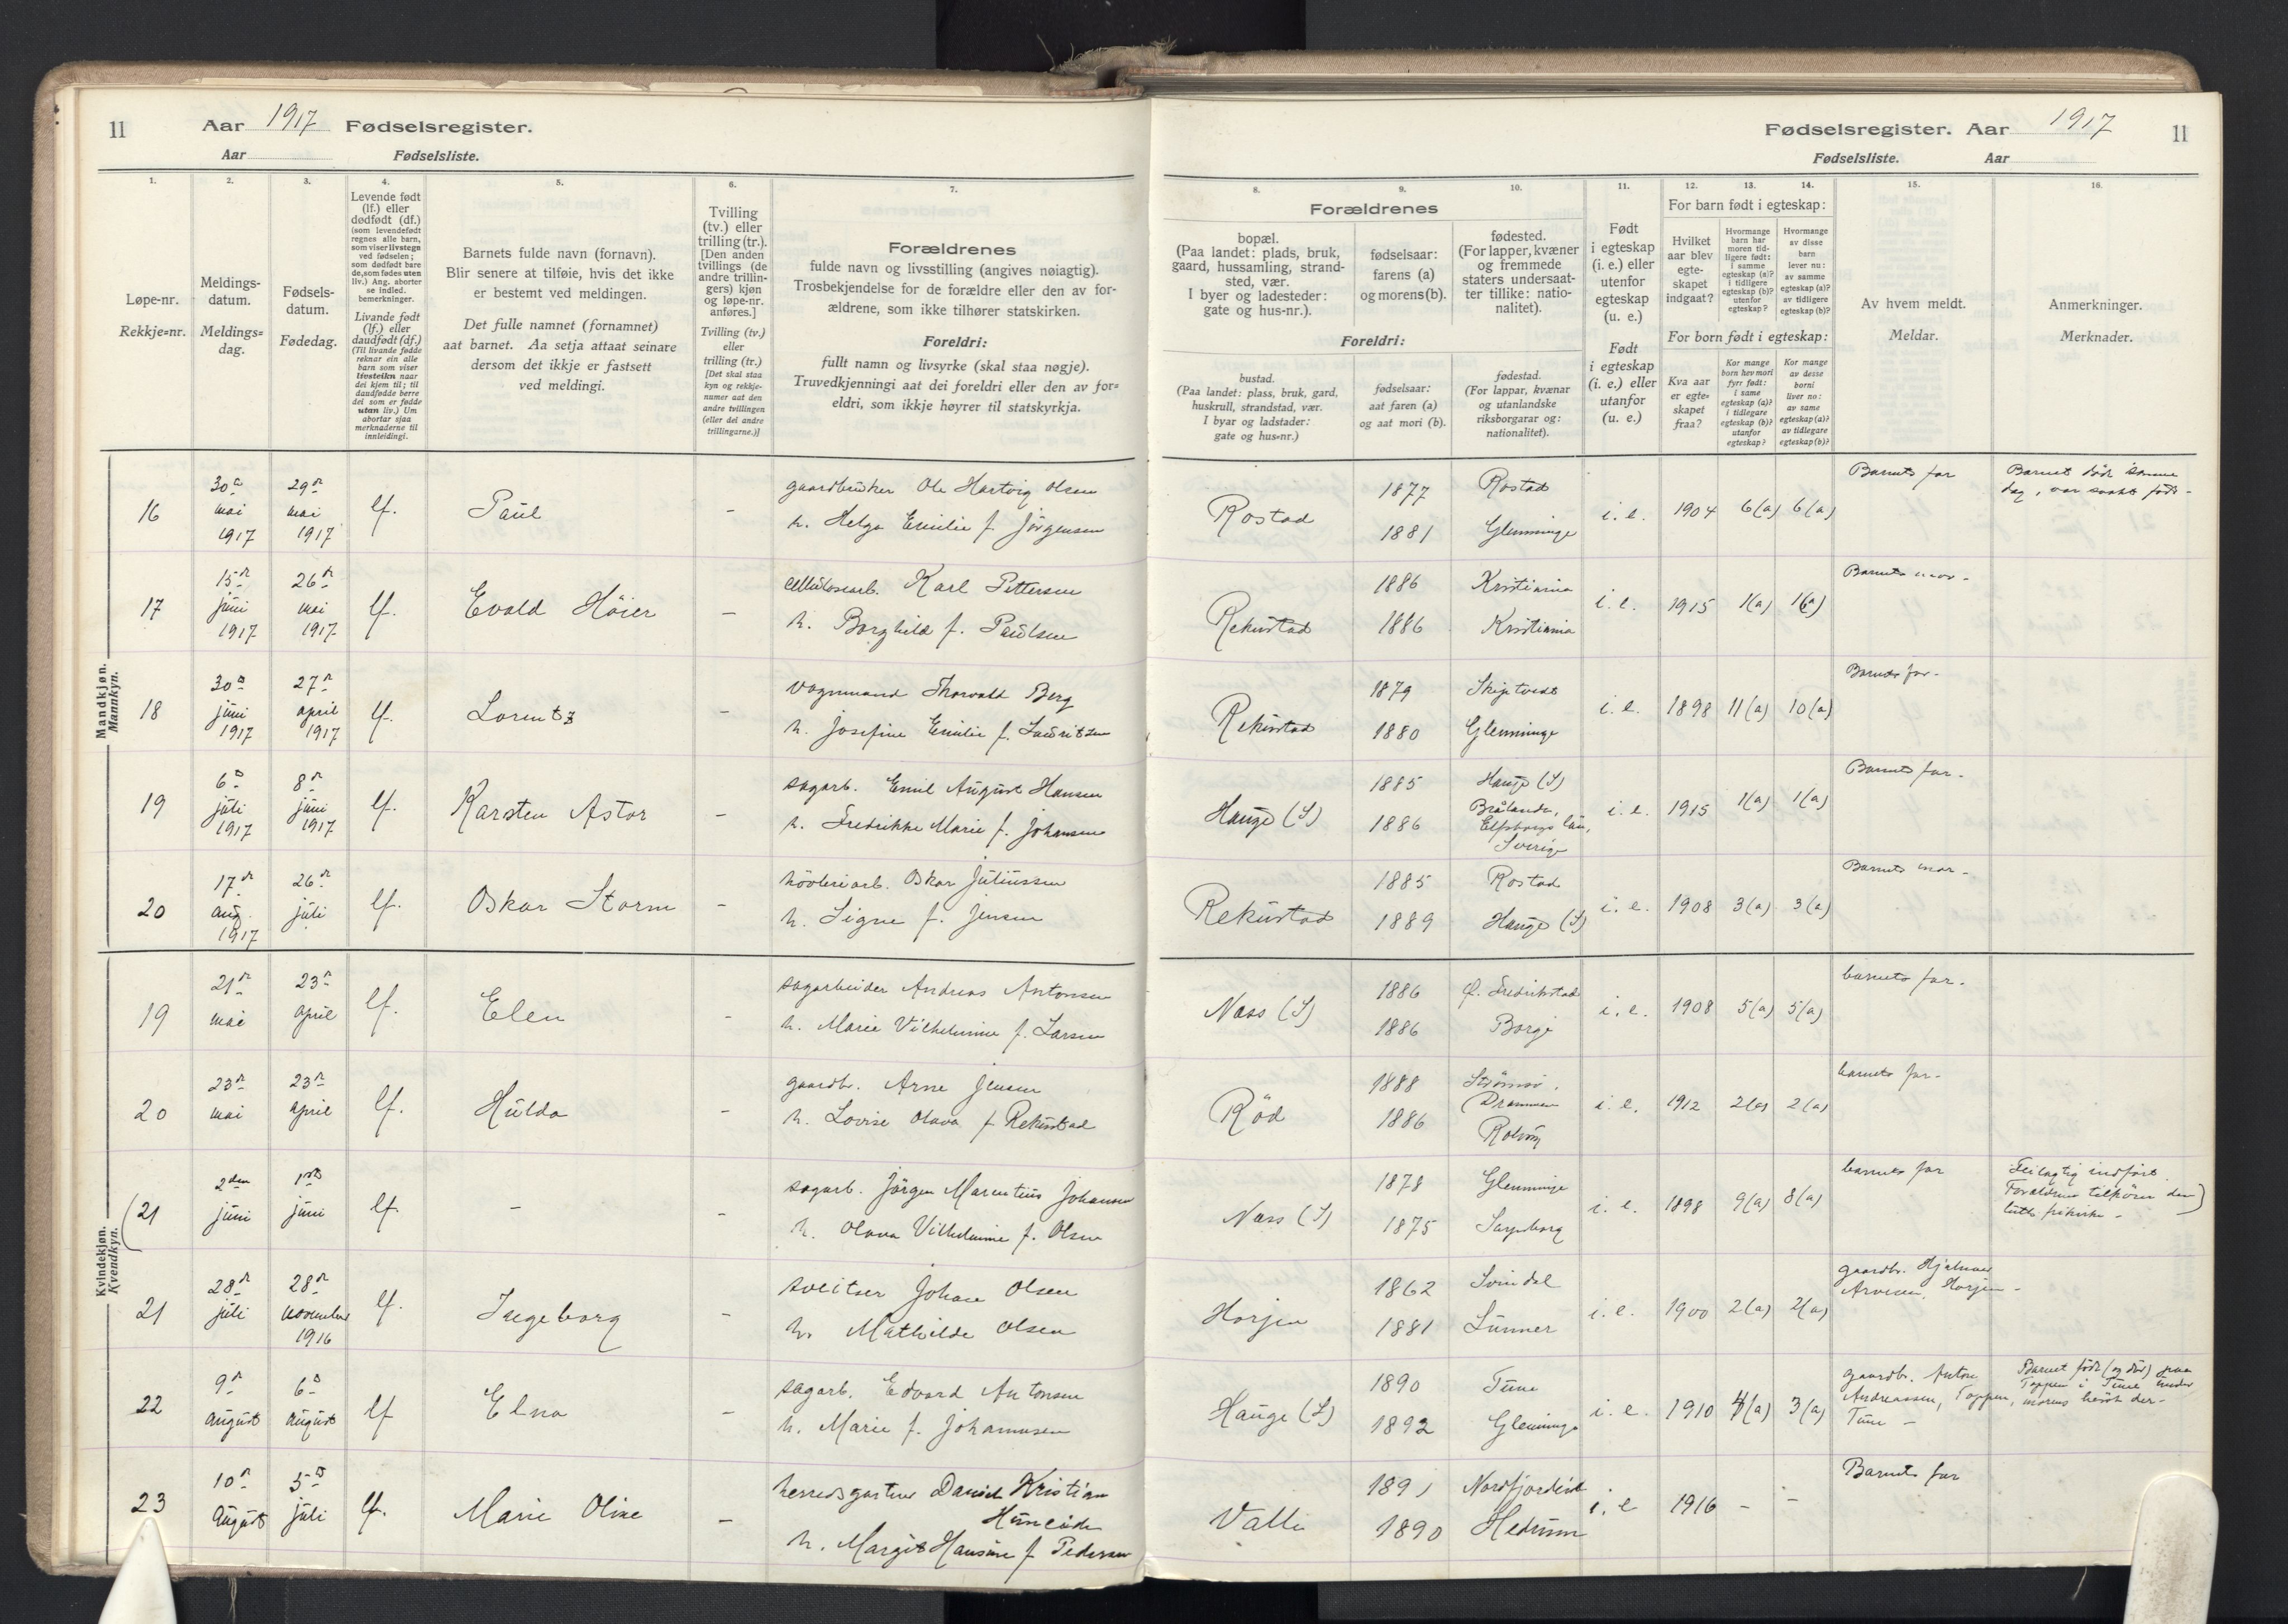 11
Aar 1917 Fødselsregister.
Aar Fødselsliste.
1.
2.
3.
4.
5.
6.
7.
Løpe-nr.
Rekkje=nr.
Meldings-
datum.
Meldings=
dag.
Fødsels-
datum.
Fødedag.
Levende født
(lf.) eller
dødfødt (df.)
(som levendefødt
regnes alle barn,
som viser livstegn
ved fødselen;
som dødfødt bare
de, som fødes uten
liv.) Ang. aborter
se indled.
bemerkninger.
Livande født
(lf.) eller
daudfødt (df.)
(Til livande fødde
reknar ein alle
barn som viser
livsteikn naar
dei kjem til; til
daudfødde berre
dei som er fødde
utan liv.) Um
abortar sjaa
merknaderne til
innleidingi.
Barnets fulde navn (fornavn).
Blir senere at tilføie, hvis det ikke
er bestemt ved meldingen.
Det fulle namnet (fornamnet)
aat barnet. Aa setja attaat seinare
dersom det ikkje er fastsett
ved meldingi.
Tvilling
(tv.) eller
trilling (tr.).
[Den anden
tvillings (de
andre trillin-
gers) kjøn
og løpe-nr.
anføres.]
Tvilling (tv.)
eller
trilling (tr.)
[Det skal staa
kyn og rekkje-
numer aat den
andre tvillingen
(eller dei andre
trillingarne.)]
Forældrenes
fulde navn og livsstilling (angives nøiagtig).
Trosbekjendelse for de forældre eller den av for-
ældrene, som ikke tilhører statskirken.
Foreldri:
fullt namn og livsyrke (skal staa nøgje).
Truvedkjenningi aat dei foreldri eller den av for=
eldri, som ikkje høyrer til statskyrkja.
Mandkjøn.
Mannkyn.
16 30 mai 1917 29 mai 1917 lf. Paul -
gaardbruker Ole Hartvig Olsen
h. Helga Emilie f. Jörgensen
17 15 juni 1917 26 mai 1917 lf. Evald Höier -
cellulosearb. Karl Pettersen
h. Borghild f. Paulsen
18 30 juni 1917 27 april 1917 lf. Lorentz -
vognmand Thorvald Berg
h. Josefine Emilie f. Lauritzen
19 6 juli 1917 8 juni 1917 lf. Karsten Astor -
sagarb. Emil August Hansen
h. Fredrikke Marie f. Johansen
20 17 aug. 1917 26 juli lf. Oskar Storm -
hövleriarb. Oskar Juliussen
h. Signe f. Jensen
Kvindekjøn.
Kvendkyn.
19 21 mai 23 april lf. Elen -
sagarbeider Andreas Antonsen
h. Marie Vilhelmine f. Larsen
20 23 mai 23 april lf. Hulda -
gaardbr. Arne Jensen
h. Lovise Olava f Rekustad
(21 2den juni 1ste juni lf. - -
sagarb. Jörgen Marentius Johansen
h. Olava Vilhelmine f. Olsen
21 28 juli 28 november 1916 lf. Ingeborg -
sveitser Johan Olsen
h. Mathilde Olsen
22 9 august 6 august lf Elna -
sagarb. Edvard Antonsen
h. Marie f. Johannesen
23 10 august 5 juli lf. Marie Oline -
herredsgartner Daniel Kristian
h. Margit Hansine f Pedersen
Fødselsregister. Aar 1917
11
Fødselsliste. Aar
8.
9.
10.
11.
12.
13.
14.
15.
16.
Forældrenes
bopæl.
(Paa landet: plads, bruk,
gaard, hussamling, strand-
sted, vær.
I byer og ladesteder:
gate og hus-nr.).
fødselsaar:
farens (a)
og morens (b).
fødested.
(For lapper, kvæner
og fremmede
staters undersaat-
ter tillike: natio-
nalitet).
Foreldri:
bustad.
(Paa landet: plass, bruk, gard,
huskrull, strandstad, vær.
I byar og ladstader:
gate og hus=nr.)
fødselsaar:
aat faren (a)
og aat mori (b).
fødestad.
(For lappar, kvænar
og utanlandske
riksborgarar og:
nationalitet).
Født
i egteskap
(i. e.) eller
utenfor
egteskap
(u. e.)
Født
i egteskap
(i. e.) eller
utanfor
(u. e.)
For barn født i egteskap:
Hvilket
aar blev
egte-
skapet
indgaat?
Hvormange
barn har
moren tid-
ligere født:
i samme
egteskap (a)?
i tidligere
egteskap (b)?
utenfor
egteskap?
Hvormange
av disse
barn
lever nu:
av samme
egteskap (a)?
av tidligere
egteskap (b)?
For born født i egteskap:
Kva aar
er egte=
skapet
fraa?
Kor mange
born hev mori
fyrr født:
i same
egteskap (a)?
i tidlegare
egteskap (b)?
utanfor
egteskap?
Kor mange
av desse
borni
liver no:
av same
egteskap (a)?
av tidlegare
egteskap (b)?
Av hvem meldt.
Meldar.
Anmerkninger.
Merknader.
Rostad 1877 Rostad
1881 Glemminge
i. e. 1904 6(a) 6(a) Barnets far
Barnet död samme
dag, var svakt födt.
Rekustad 1886 Kristiania
1886 Kristiania
i. e. 1915 1(a) 1(a) Barnets mor.
Rekustad 1879 Skiptvedt
1880 Glemminge
i. e. 1898 11(a) 10(a) Barnets far.
Hauge (S) 1885 Hauge (S)
1886 Brålanda,
Elfsborgs län,
Sverige
i. e. 1915 1(a) 1(a) Barnets far.
Rekustad 1885 Rostad
1889 Hauge (S)
i. e. 1908 3(a) 3(a) Barnets mor.
Næss (S) 1886 Ø. Fredrikstad
1886 Borge
i. e. 1908 5(a) 5(a) barnets far.
Röd 1888 Strömsö,
Drammen
1886 Rolvsöy
i. e. 1912 2(a) 2(a) barnets far.
Næss (S) 1878 Glemminge
1875 Sarpsborg
i. e. 1898 9(a) 8(a) barnets far
Feilagtig indfört.
Forældrene tilhörer den
luth. frikirke.)
Horjen 1862 Svindal
1881 Lunner
i. e. 1900 2(a) 2(a)
gaardbr. Hjalmar
Arvesen, Horjen.
Hauge (S) 1890 Tune
1892 Glemminge
i. e. 1910 4(a) 3(a)
gaardbr. Anton
Andreassen, Toppen,
Tune
Barnet födt (og död) paa
Toppen i Tune under
morens besök der.
Valle 1891 Nordfjordeid
1890 Hedrum
i. e 1916 - - Barnets far